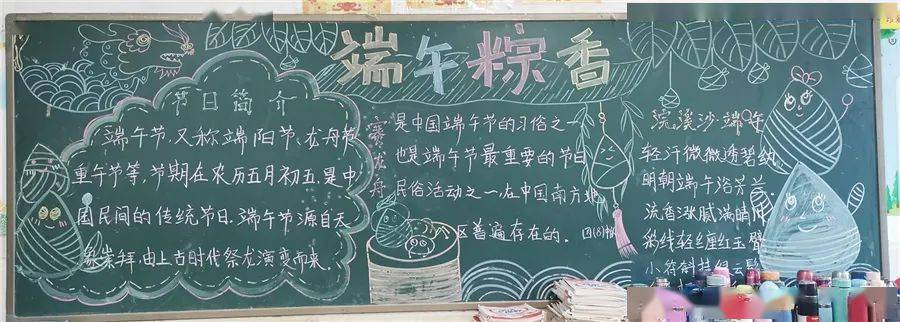 端午粽香
节日简介
端午节,又称端阳节、龙舟节、
重午节等,节期在农历五月初五,是中
国民间的传统节日.端午节源自天
象崇拜,由上古时代祭龙演变而来.
赛龙舟
是中国端午节的习俗之一
也是端午节最重要的节日
民俗活动之一,在中国南方地
区普遍存在的。
浣溪沙端午
轻汗微微透碧纨,
明朝端午浴芳兰.
流香涨腻满晴川
彩线轻缠红玉臂
小符斜挂绿云鬟